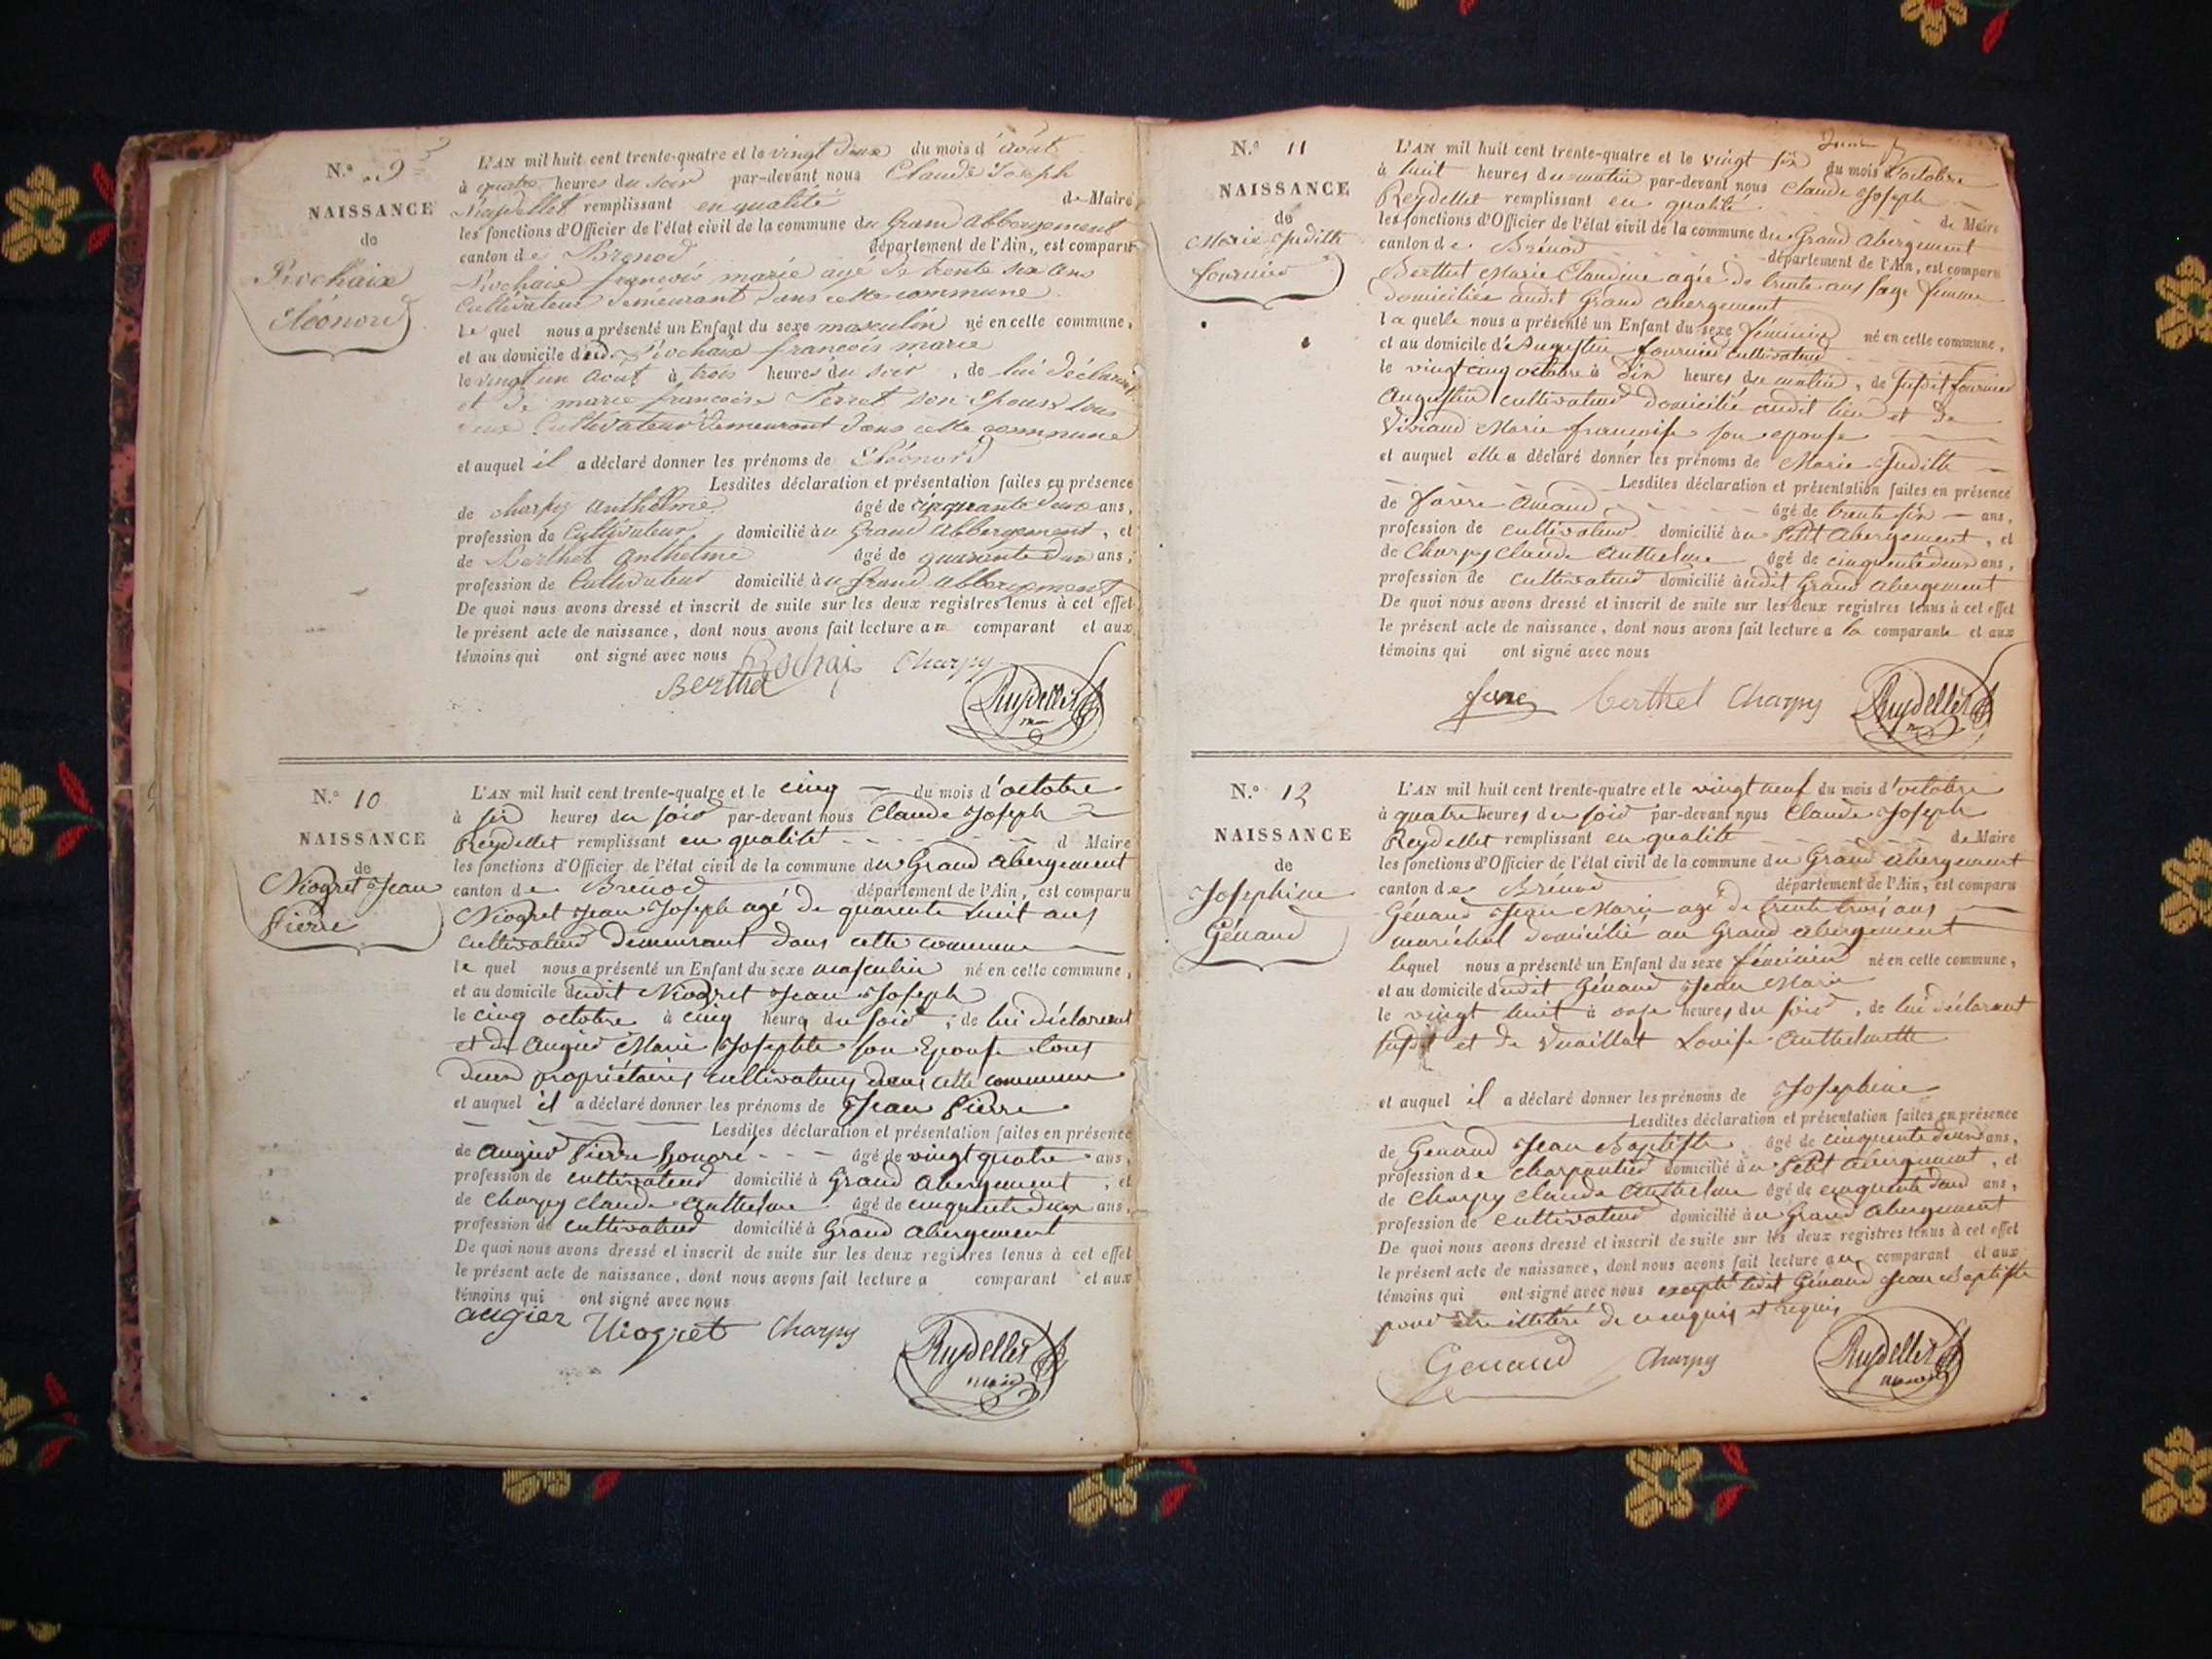 N.º 9
NAISSANCE
de
Rochaix
Eléonord
L'AN mil huit cent trente-quatre et le vingt deux du mois d'août
à quatre heures du soir par-devant nous Claude Joseph
Reydellet remplissant en qualité de Maire
les fonctions d'Officier de l'état civil de la commune du Grand Abbergement
canton de Brenod département de l'Ain, est comparu
Rochaix francois marie agé de trente six ans
Cultivateur demeurant dans cette commune
le quel nous a présenté un Enfant du sexe masculin né en cette commune,
et au domicile dud. Rochaix francois marie
le vingt un Août à trois heures du soir, de lui déclarant
et de marie francoise Perret son Epouse tous
deux Cultivateur demeurant dans cette commune
et auquel il a déclaré donner les prénoms de Eléonord
Lesdites déclaration et présentation faites en présence
de charpy Anthelme âgé de cinquante deux ans,
profession de Cultivateur domicilié au Grand Abbergement, et
de Berthet Anthelme âgé de quarante deux ans,
profession de Cultivateur domicilié au Grand Abbergement
De quoi nous avons dressé et inscrit de suite sur les deux registres tenus à cet effet
le présent acte de naissance, dont nous avons fait lecture au comparant et aux
témoins qui ont signé avec nous
Rochaix Charpy
Berthet Reydellet
N.º 10
NAISSANCE
de
Niogret Jean
Pierre
L'AN mil huit cent trente-quatre et le cinq du mois d'octobre
à six heures du soir par-devant nous Claude Joseph
Reydellet remplissant en qualité d Maire
les fonctions d'Officier de l'état civil de la commune du Grand Abergement
canton de Brénod département de l'Ain, est comparu
Niogret Jean Joseph agé de quarente huit ans
cultivateur demeurant dans cette commune
le quel nous a présenté un Enfant du sexe masculin né en cette commune,
et au domicile dudit Niogret Jean Joseph
le cinq octobre à cinq heures du soir, de lui déclarant
et de Augier Marie Josephte son Epouse tous
deux propriétaires cultivateurs dans cette commune
et auquel il a déclaré donner les prénoms de Jean Pierre
Lesdites déclaration et présentation faites en présence
de Augier Pierre honoré âgé de vingt quatre ans,
profession de cultivateur domicilié à Grand Abergement, et
de Charpy Claude Anthelme âgé de cinquente deux ans,
profession de cultivateur domicilié à Grand Abergement
De quoi nous avons dressé et inscrit de suite sur les deux registres tenus à cet effet
le présent acte de naissance, dont nous avons fait lecture a comparant et aux
témoins qui ont signé avec nous
augier Niogret Charpy Reydellet
maire
N.º 11
NAISSANCE
de
Marie Juditte
fournier
L'AN mil huit cent trente-quatre et le vingt six du mois d'octobre
à huit heures du matin par-devant nous Claude Joseph
Reydellet remplissant en qualité de Maire
les fonctions d'Officier de l'état civil de la commune du Grand Abergement
canton de Brénod département de l'Ain, est comparu
Berthet Marie Claudine agée de trente ans sage femme
domiciliée audit Grand Abergement
la quelle nous a présenté un Enfant du sexe féminin né en cette commune,
et au domicile d'Augustin fournier cultivateur
le vingt cinq octobre à dix heures du matin, de susdit fournier
Augustin cultivateur domicilié audit lieu et de
Viviand Marie francoise son epouse
et auquel elle a déclaré donner les prénoms de Marie Juditte
Lesdites déclaration et présentation faites en présence
de Amand âgé de trente six ans,
profession de cultivateur domicilié au Petit Abergement, et
de Charpy Claude Anthelme âgé de cinquente deux ans,
profession de cultivateur domicilié audit Grand Abergement
De quoi nous avons dressé et inscrit de suite sur les deux registres tenus à cet effet
le présent acte de naissance, dont nous avons fait lecture a la comparante et aux
témoins qui ont signé avec nous
berthet Charpy Reydellet
N.º 12
NAISSANCE
de
Josephine
Génand
L'AN mil huit cent trente-quatre et le vingt neuf du mois d'octobre
à quatre heures du soir par-devant nous Claude Joseph
Reydellet remplissant en qualité de Maire
les fonctions d'Officier de l'état civil de la commune du Grand Abergement
canton de Brénod département de l'Ain, est comparu
Génand Jean Marie agé de trente trois ans
maréchal domicilié au Grand Abergement
lequel nous a présenté un Enfant du sexe féminin né en cette commune,
et au domicile dudit Génand Jean Marie
le vingt huit à onze heures du soir, de lui déclarant
susdit et de Vuaillat Louise Anthelmette
et auquel il a déclaré donner les prénoms de Josephine
Lesdites déclaration et présentation faites en présence
de Génand Jean Baptiste âgé de cinquente deux ans,
profession de charpentier domicilié au Petit Abergement, et
de Charpy Claude Anthelme âgé de cinquente deux ans,
profession de cultivateur domicilié au Grand Abergement
De quoi nous avons dressé et inscrit de suite sur les deux registres tenus à cet effet
le présent acte de naissance, dont nous avons fait lecture au comparant et aux
témoins qui ont signé avec nous excepté ledit Génand Jean Baptiste
pour être illitéré de ce enquis et requis
Genand Charpy Reydellet